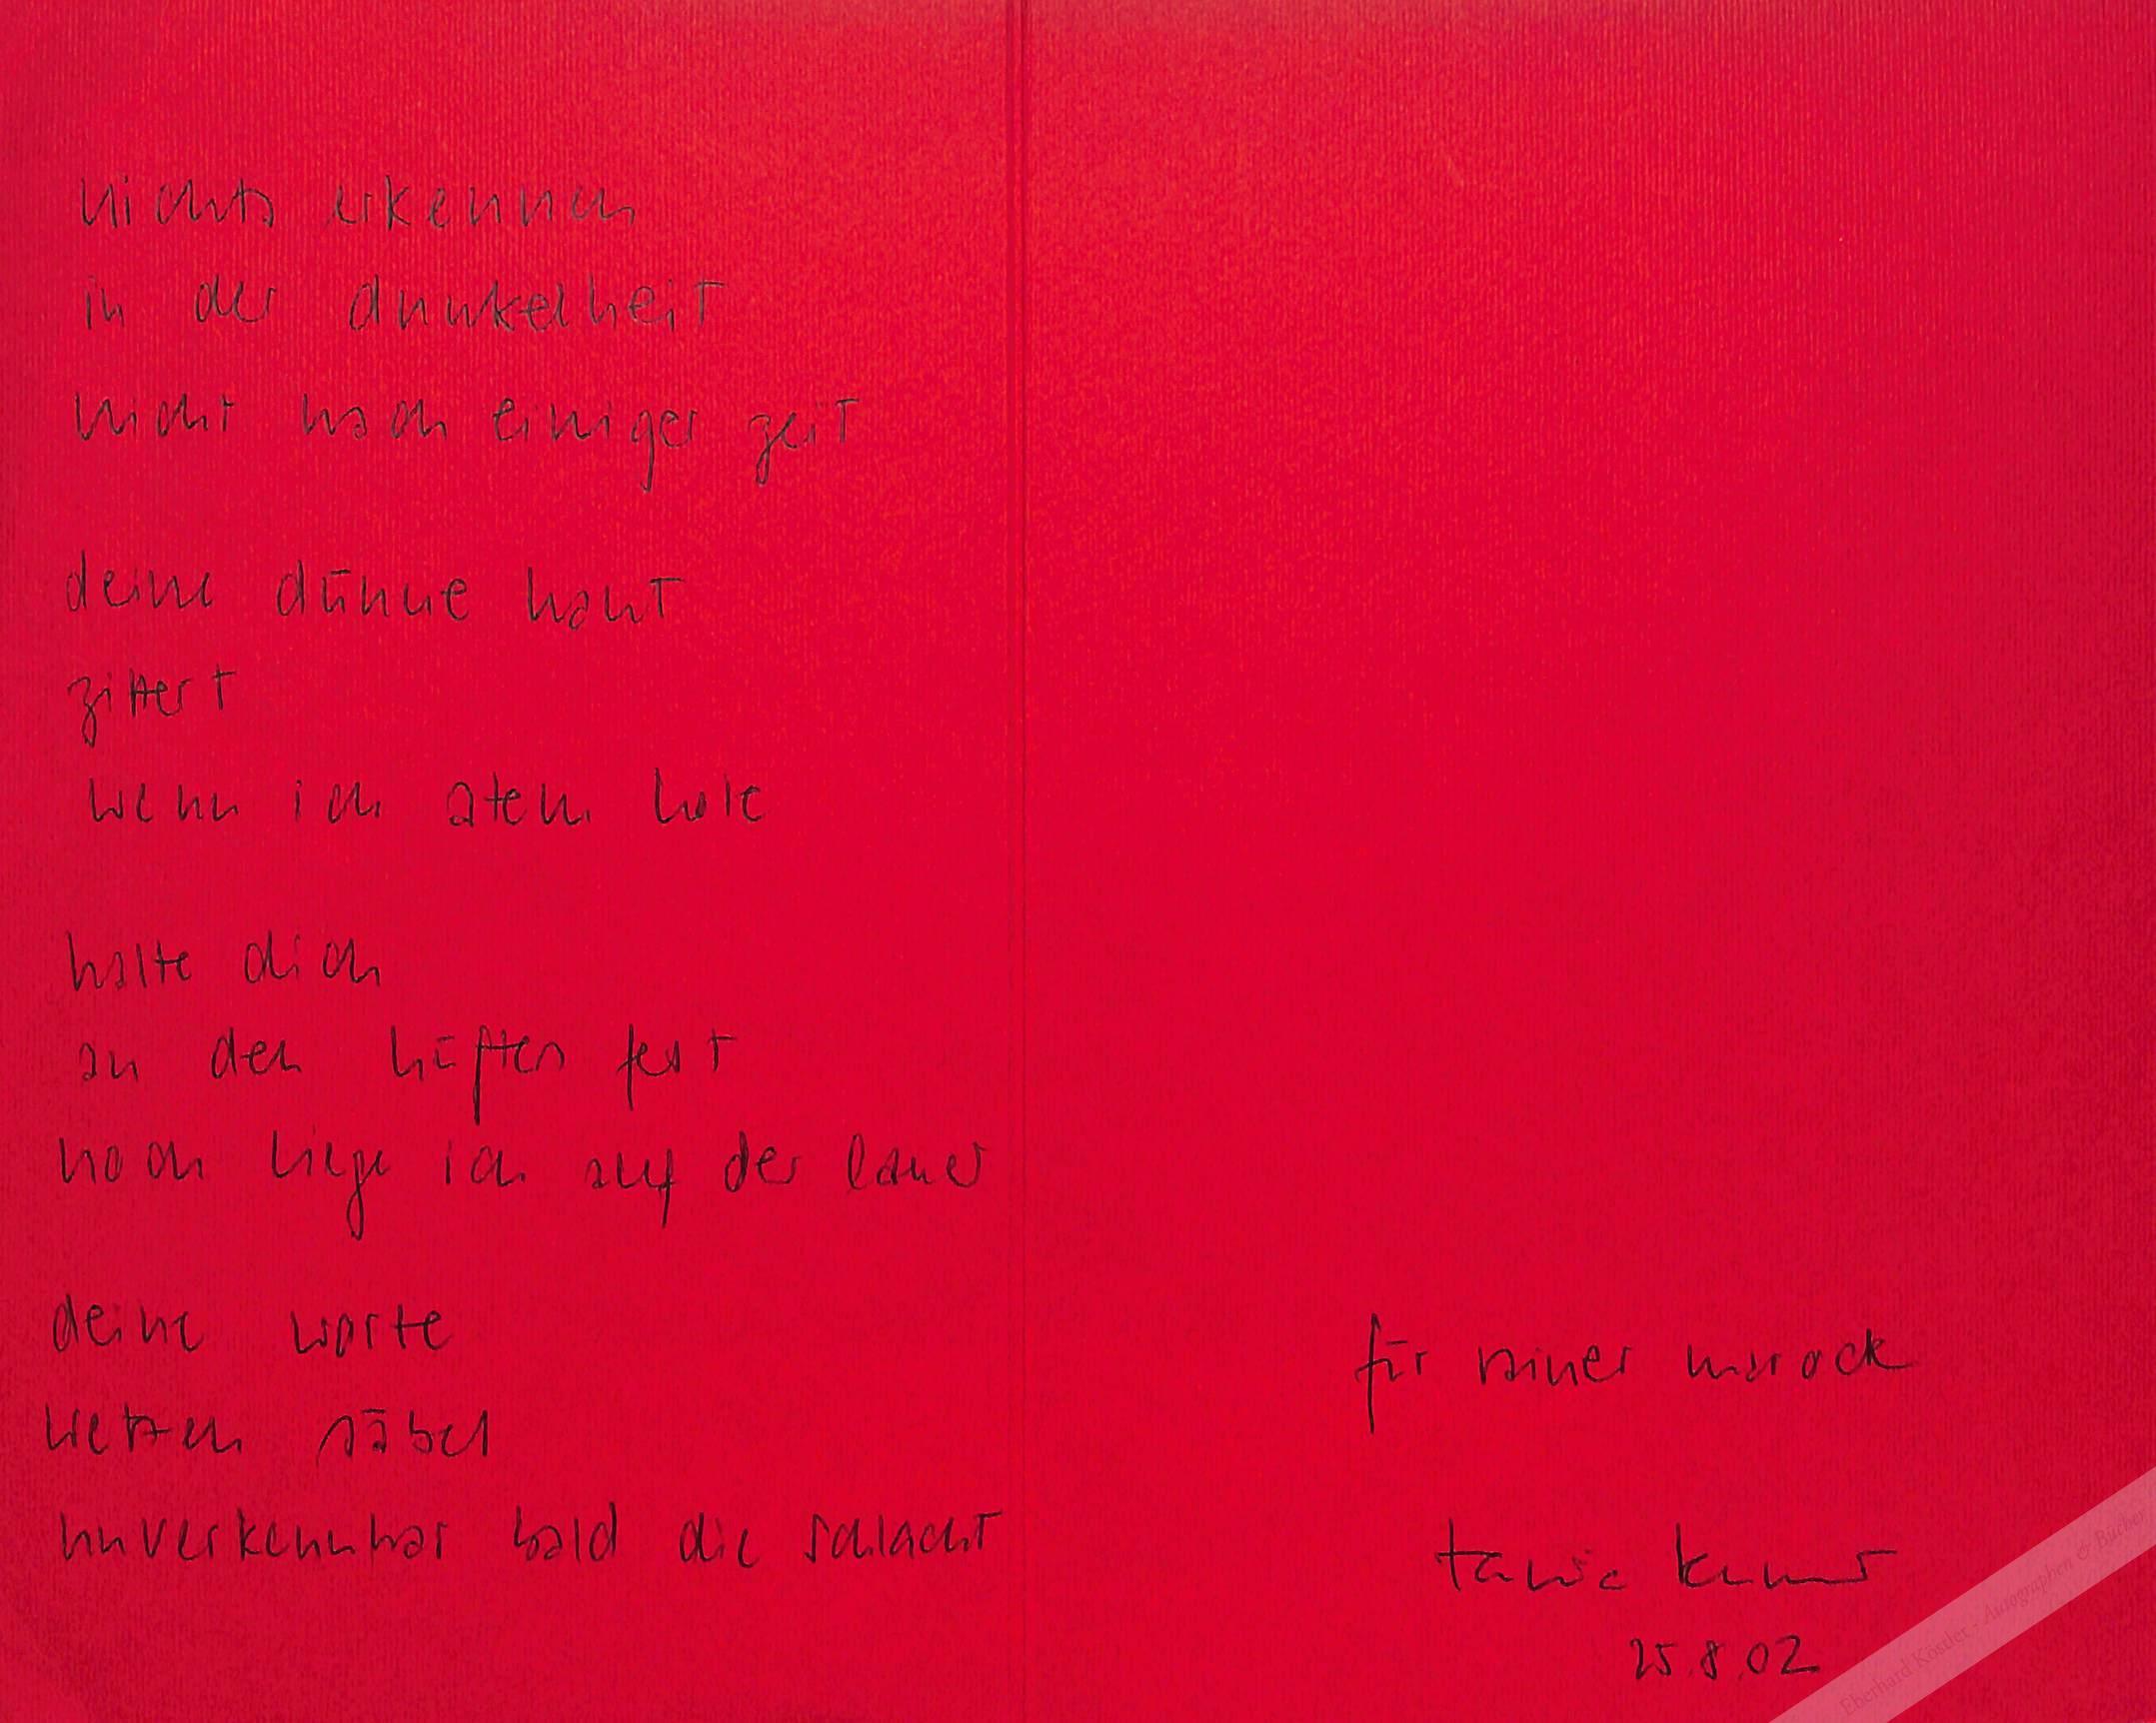 nichts erkennen
in der dunkelheit
nicht nach einiger zeit
deine dünne haut
zittert
wenn ich atem hole
halte dich
an den hüften fest
noch liege ich auf der lauer
deine worte
wetzen säbel
unverkennbar bald die schlacht
für rainer marock
tanja
25.8.02
Eberhard Köstler - Autographen & Bücher